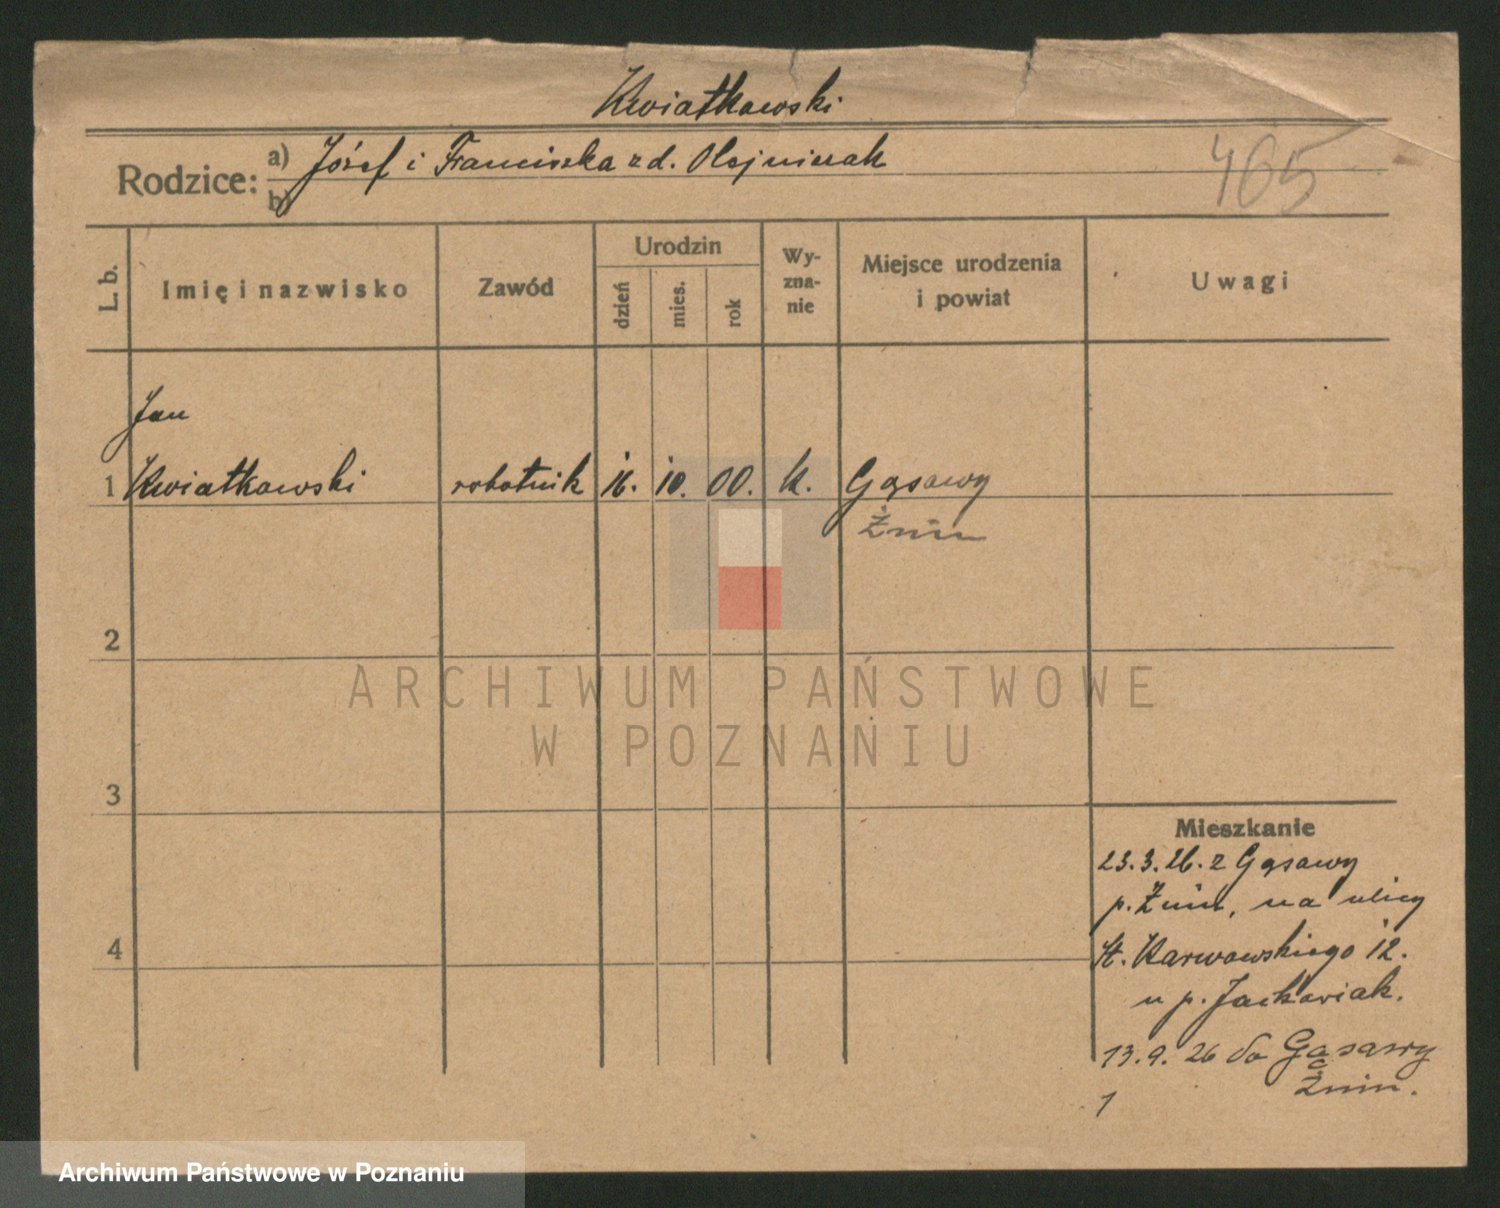 Kwiatkowski
Rodzice: a) Józef i Franciszka z d. Olejniczak
b)
465
L. b.
Imię i nazwisko
Zawód
Urodzin
dzień
mies.
rok
Wy-
zna-
nie
Miejsce urodzenia
i powiat
Uwagi
Jan
1 Kwiatkowski robotnik 16. 10. 00. k. Gąsawy
Żnin
2
ARCHIWUM PAŃSTWOWE
W POZNANIU
3
Mieszkanie
23.3.26. z Gąsawy
p. Żnin, na ulicy
St. Karwowskiego 12.
4
u p. Jackowiak.
13.9.26 do Gąsawy
Żnin.
1
Archiwum Państwowe w Poznaniu